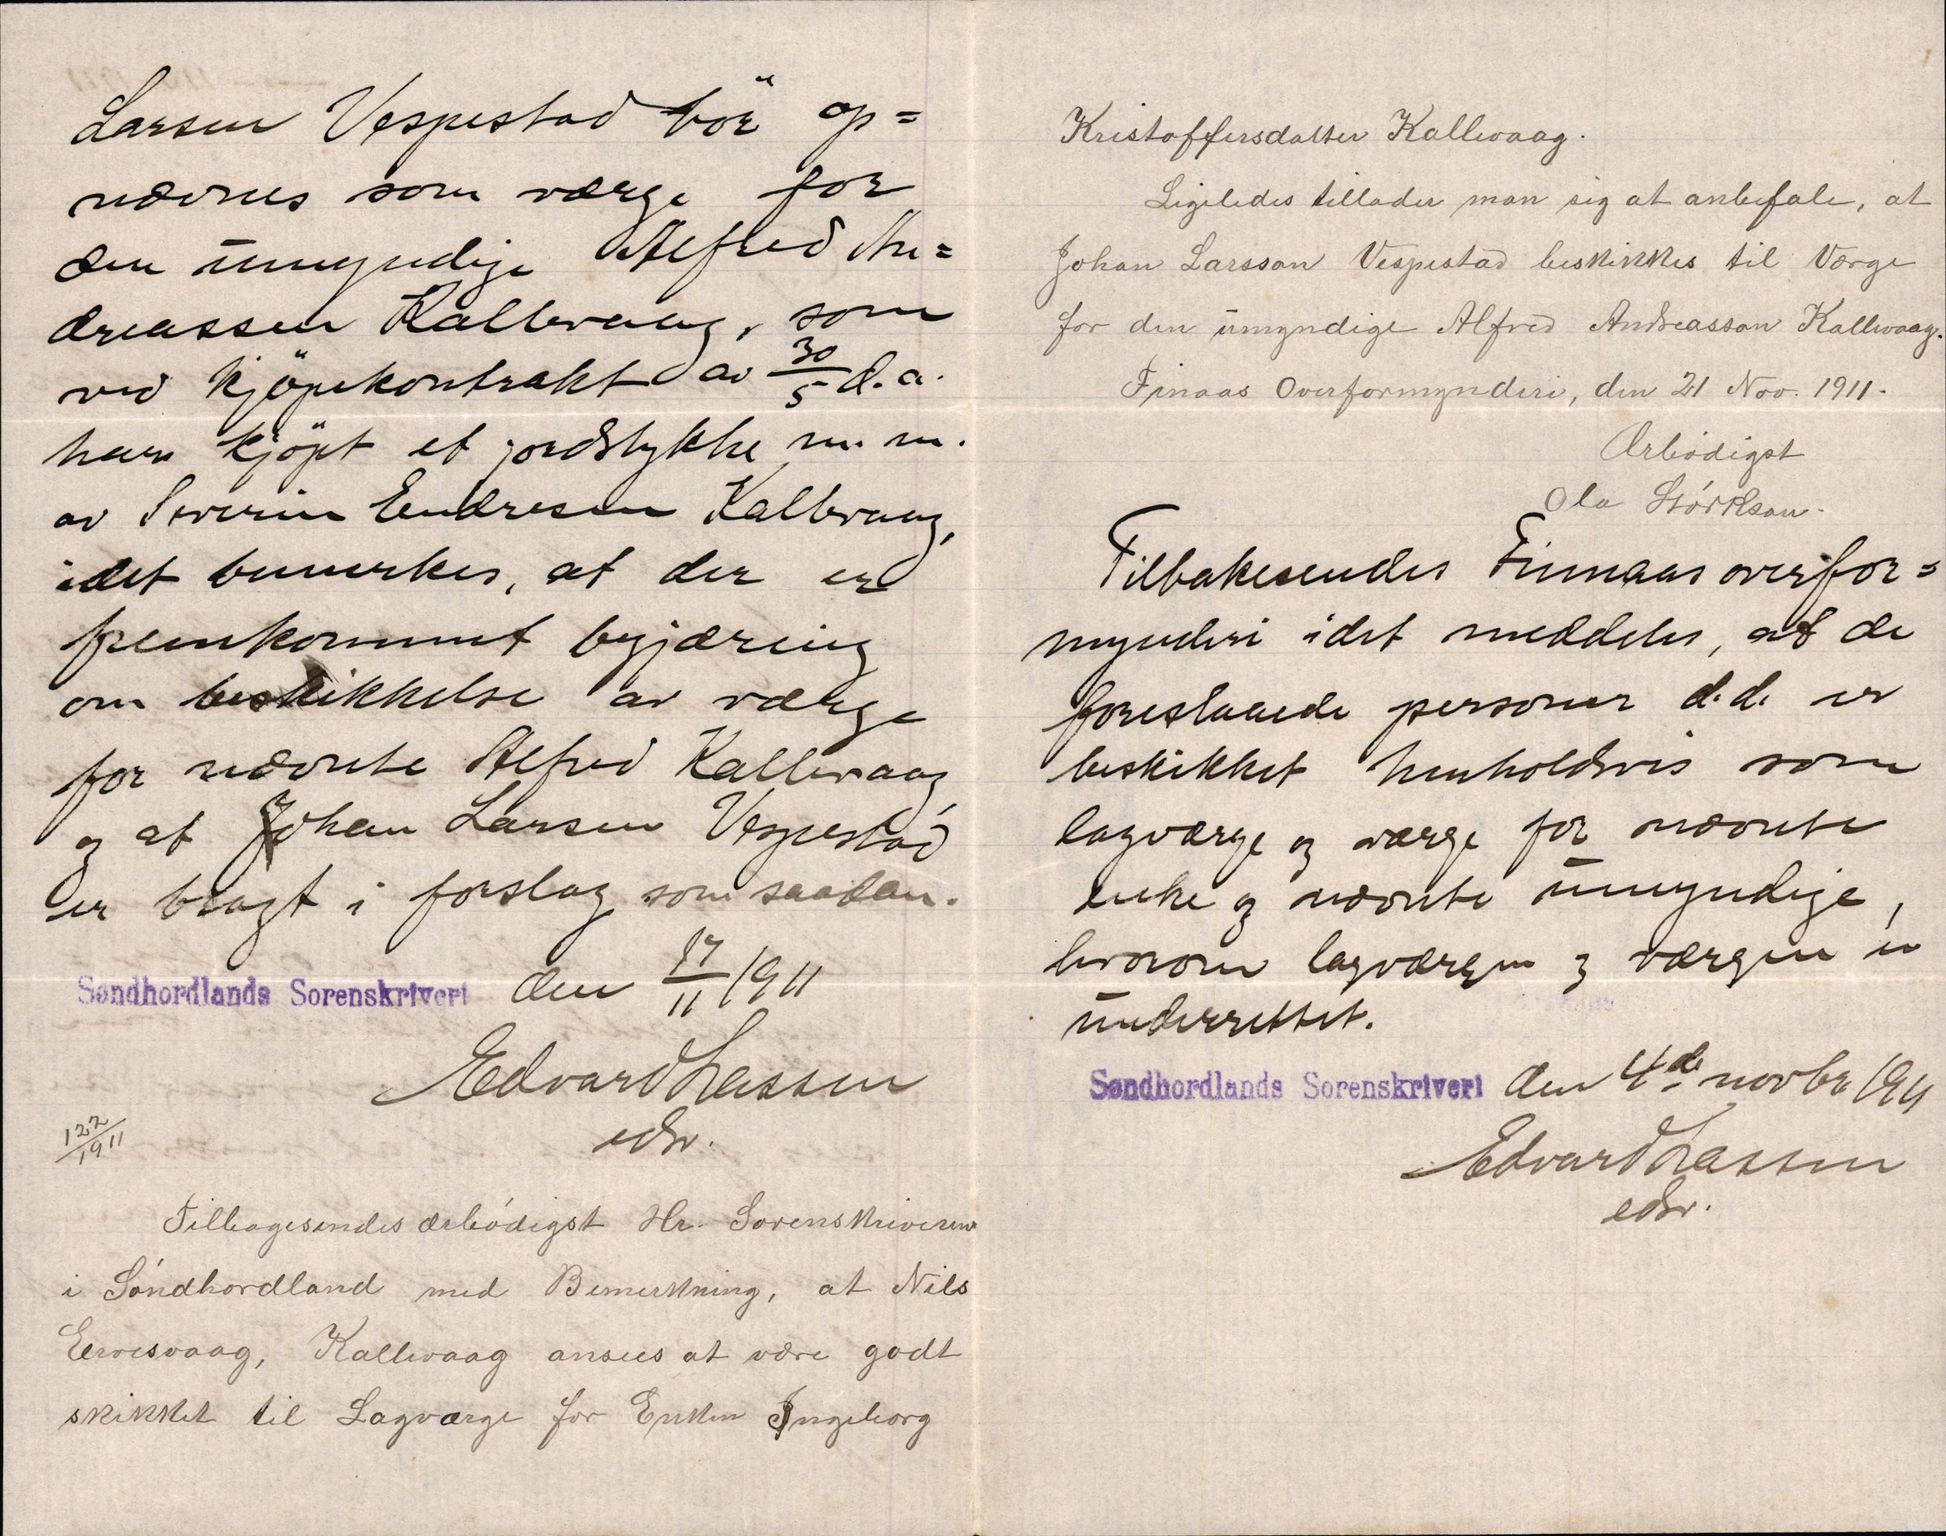 Larsen Vespestad bör op=
nævnes som værge for
den umyndige Alfred An=
dreassen Kallevaag, som
ved kjöpekontrakt av 30/5 d.a.
har kjöpt et jordstykke m.m.
av Severin Endresen Kallevaag,
idet bemerkes, at der er
fremkommet begjæring
om beskikkelse av værge
for nævnte Alfred Kallevaag
og at Johan Larsen Vespestad
er bragt i forslag som saadan.
Søndhordlands Sorenskriveri den 17/11 1911
Edvard Lassen
edsv.
122/1911
Tilbagesendes ærbödigst Hr. Sorenskriveren
i Söndhordland med Bemerkning, at Nils
Eersvaag, Kallevaag ansees at være godt
skikket til Lagværge for Enken Ingeborg
Kristoffersdatter Kallevaag.
Ligeledes tillader man sig at anbefale, at
Johan Larsson Vespestad beskikkes til Værge
for den umyndige Alfred Andreasson Kallevaag.
Finaas Overformynderi, den 21 Nov. 1911.
Ærbödigst
Ola Störkson.
Tilbakesendes Finnaas overfor=
mynderi idet meddeles, at de
foreslaaede personer d.d. er
beskikket henholdsvis som
lagværge og værge for nævnte
enke og nævnte umyndige,
hvorom lagværgen og værgen er
underrettet.
Søndhordlands Sorenskriveri den 4de novbr 1911
Edvard Lassen
edsv.